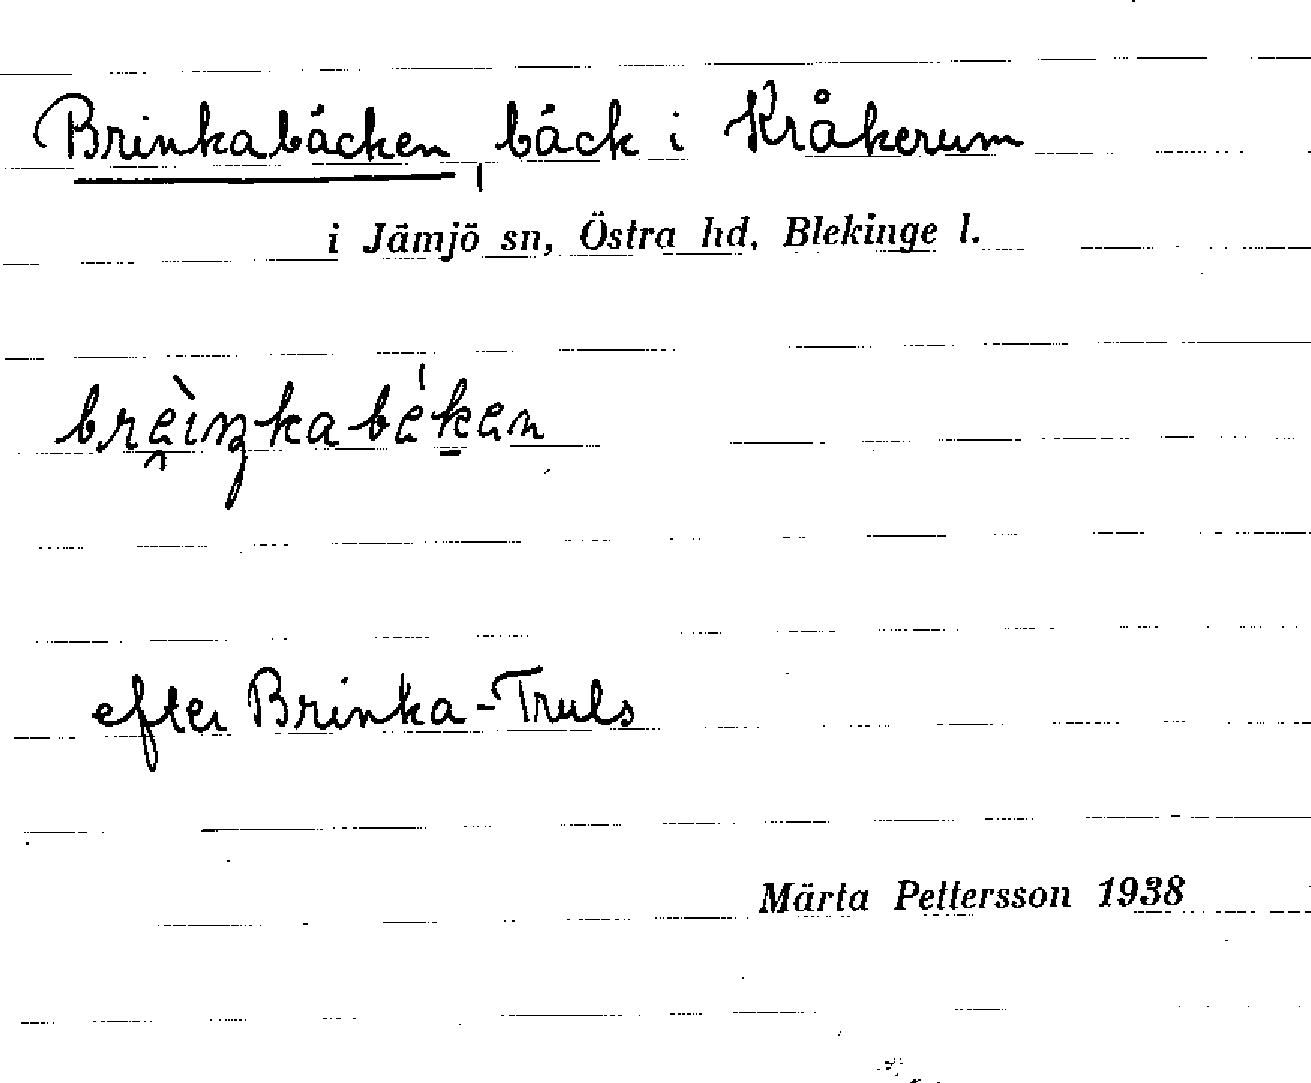 Brinkabäcken, bäck i Kråkerum
i Jämjö sn, Östra hd, Blekinge l.
efter Brinka-Truls
Märta Pettersson 1938